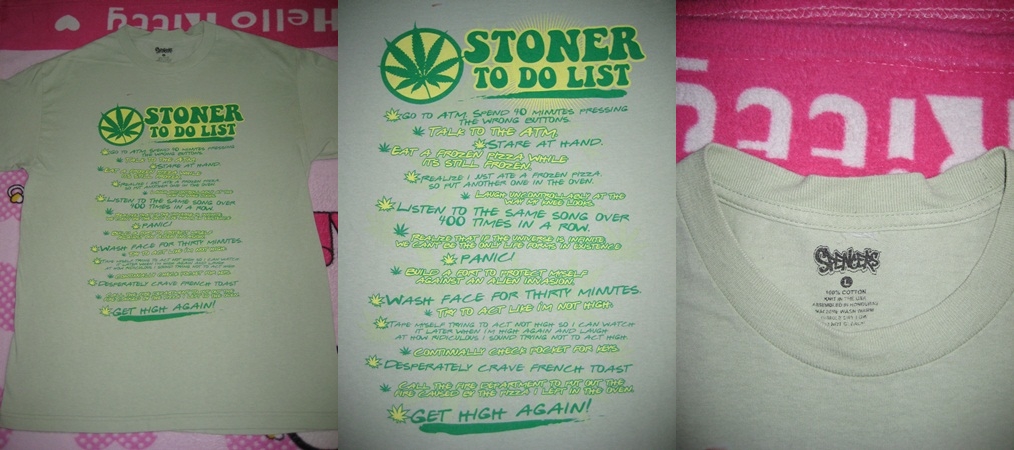 Hello Kitty
SPENCERS
STONER
TO DO LIST
STONER
TO DO LIST
GO TO ATM, SPEND 40 MINUTES PRESSING
THE WRONG BUTTONS.
TALK TO THE ATM.
STARE AT HAND.
EAT A FROZEN PIZZA WHILE
IT'S STILL FROZEN.
REALIZE I JUST ATE A FROZEN PIZZA,
SO PUT ANOTHER ONE IN THE OVEN.
LAUGH UNCONTROLLABLY AT THE
WAY MY KNEE LOOKS.
LISTEN TO THE SAME SONG OVER
400 TIMES IN A ROW.
REALIZE THAT IF THE UNIVERSE IS INFINITE,
WE CAN'T BE THE ONLY LIFE FORMS IN EXISTENCE
PANIC!
BUILD A FORT TO PROTECT MYSELF
AGAINST AN ALIEN INVASION.
WASH FACE FOR THIRTY MINUTES.
TRY TO ACT LIKE I'M NOT HIGH.
TAPE MYSELF TRYING TO ACT NOT HIGH SO I CAN WATCH
IT LATER WHEN I'M HIGH AGAIN AND LAUGH
AT HOW RIDICULOUS I SOUND TRYING NOT TO ACT HIGH.
CONTINUALLY CHECK POCKET FOR KEYS.
DESPERATELY CRAVE FRENCH TOAST
CALL THE FIRE DEPARTMENT TO PUT OUT THE
FIRE CAUSED BY THE PIZZA I LEFT IN THE OVEN.
GET HIGH AGAIN!
SPENCERS
L
100% COTTON
KNIT IN THE USA
ASSEMBLED IN HONDURAS
MACHINE WASH WARM